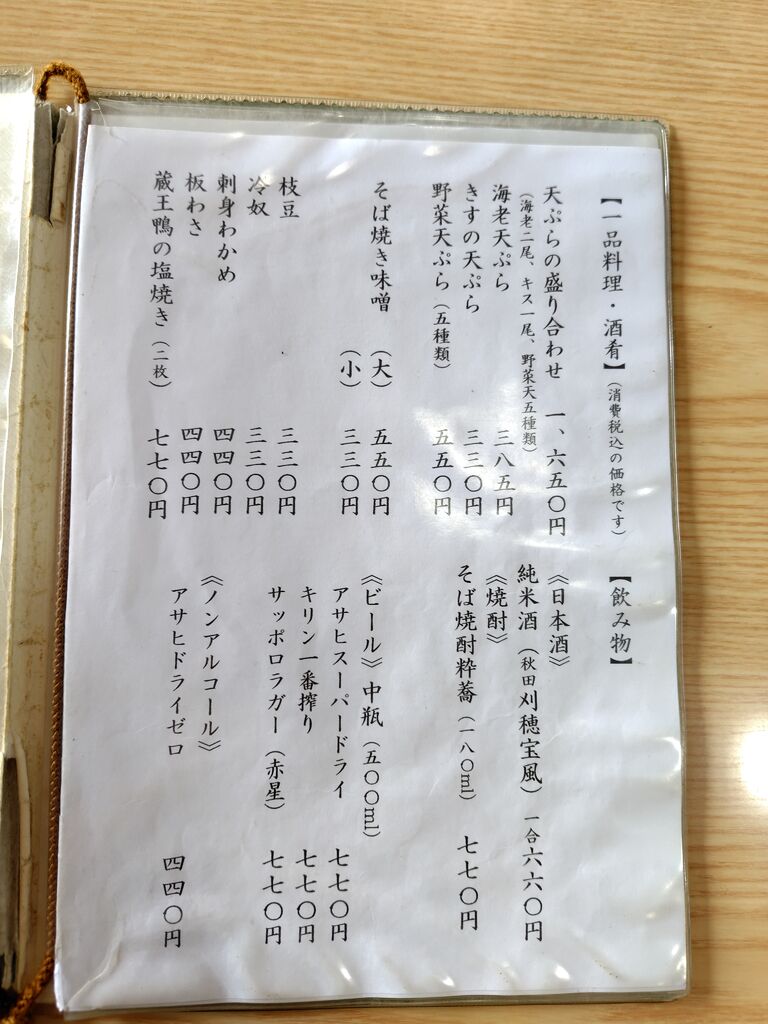 【一品料理・酒肴】（消費税込の価格です）
天ぷらの盛り合わせ 一、六五〇円
（海老二尾、キス一尾、野菜天五種類）
海老天ぷら 三八五円
きすの天ぷら 三三〇円
野菜天ぷら（五種類） 五五〇円
そば焼き味噌（大） 五五〇円
（小） 三三〇円
枝豆 三三〇円
冷奴 三三〇円
刺身わかめ 四四〇円
板わさ 四四〇円
蔵王鴨の塩焼き（二枚） 七七〇円
【飲み物】
《日本酒》
純米酒（秋田刈穂宝風）一合六六〇円
《焼酎》
そば焼酎粋蕎（一八〇ml） 七七〇円
《ビール》中瓶（五〇〇ml）
アサヒスーパードライ 七七〇円
キリン一番搾り 七七〇円
サッポロラガー（赤星） 七七〇円
《ノンアルコール》
アサヒドライゼロ 四四〇円